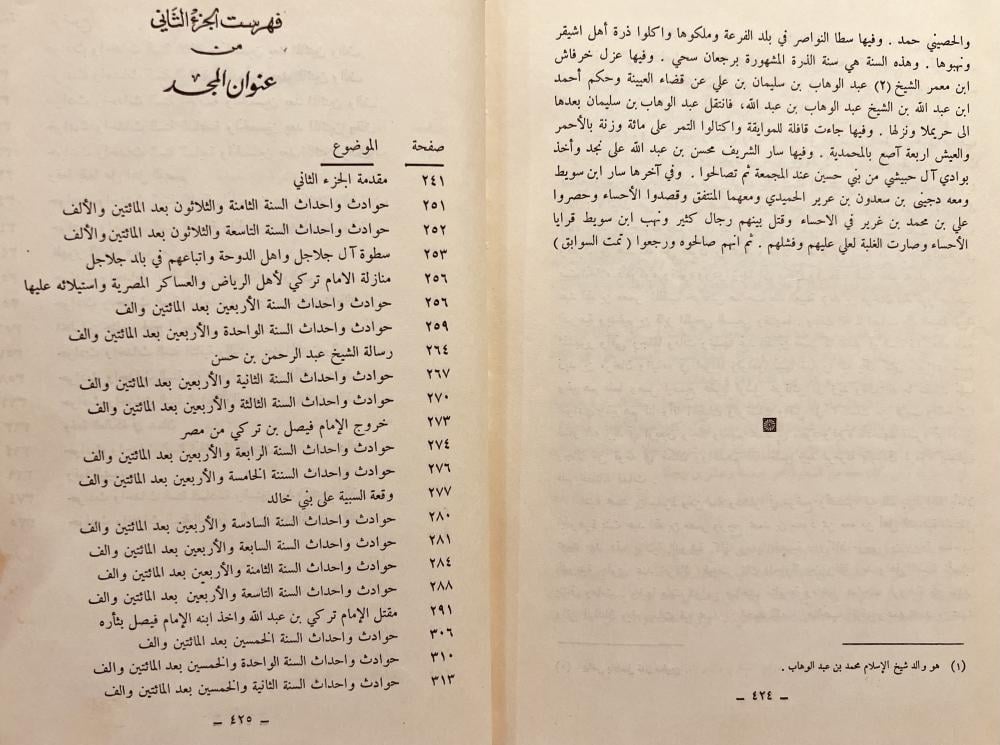 والحصيني حمد . وفيها سطا النواصر في بلد الفرعة وملكوها واكلوا ذرة أهل اشيقر
ونهبوها . وهذه السنة هي سنة الذرة المشهورة برجعان سحي . وفيها عزل خرفاش
ابن معمر الشيخ (٢) عبد الوهاب بن سليمان بن علي عن قضاء العيينة وحكم أحمد
ابن عبد الله بن الشيخ عبد الوهاب بن عبد الله، فانتقل عبد الوهاب بن سليمان بعدها
الى حريملا ونزلها . وفيها جاءت قافلة للموايقة واكتالوا التمر على مائة وزنة بالأحمر
والعيش اربعة آصع بالمحمدية . وفيها سار الشريف محسن بن عبد الله على نجد وأخذ
بوادي آل حبيشي من بني حسين عند المجمعة ثم تصالحوا . وفي آخرها سار ابن سويط
ومعه دجيني بن سعدون بن عرير الحميدي ومعهما المنتفق وقصدوا الأحساء وحصروا
علي بن محمد بن غرير في الاحساء وقتل بينهم رجال كثير ونهب ابن سويط قرايا
الأحساء وصارت الغلبة لعلي عليهم وفشلهم . ثم انهم صالحوه ورجعوا ( تمت السوابق )
(١) هو والد شيخ الإسلام محمد بن عبد الوهاب .
– ٤٢٤ –
فهرست الجزء الثاني
من
عنوان المجد
صفحة الموضوع
٢٤١ مقدمة الجزء الثاني
٢٥١ حوادث واحداث السنة الثامنة والثلاثون بعد المائتين والألف
٢٥٢ حوادث واحداث السنة التاسعة والثلاثون بعد المائتين والألف
٢٥٣ سطوة آل جلاجل واهل الدوحة واتباعهم في بلد جلاجل
٢٥٦ منازلة الامام تركي لأهل الرياض والعساكر المصرية واستيلائه عليها
٢٥٦ حوادث واحداث السنة الأربعين بعد المائتين والف
٢٥٩ حوادث واحداث السنة الواحدة والأربعين بعد المائتين والف
٢٦٤ رسالة الشيخ عبد الرحمن بن حسن
٢٦٧ حوادث واحداث السنة الثانية والأربعين بعد المائتين والف
٢٧٠ حوادث واحداث السنة الثالثة والأربعين بعد المائتين والف
٢٧٣ خروج الإمام فيصل بن تركي من مصر
٢٧٤ حوادث واحداث السنة الرابعة والأربعين بعد المائتين والف
٢٧٦ حوادث واحداث السننة الخامسة والأربعين بعد المائتين والف
٢٧٧ وقعة السبية على بني خالد
٢٨٠ حوادث واحداث السنة السادسة والأربعين بعد المائتين والف
٢٨١ حوادث واحداث السنة السابعة والأربعين بعد المائتين والف
٢٨٤ حوادث واحداث السنة الثامنة والأربعين بعد المائتين والف
٢٨٨ حوادث واحداث السنة التاسعة والأربعين بعد المائتين والف
٢٩١ مقتل الإمام تركي بن عبد الله واخذ ابنه الإمام فيصل بثأره
٣٠٦ حوادث واحداث السنة الخمسين بعد المائتين والف
٣١٠ حوادث واحداث السنة الواحدة والخمسين بعد المائتين والف
٣١٣ حوادث واحداث السنة الثانية والخمسين بعد المائتين والف
– ٤٢٥ –